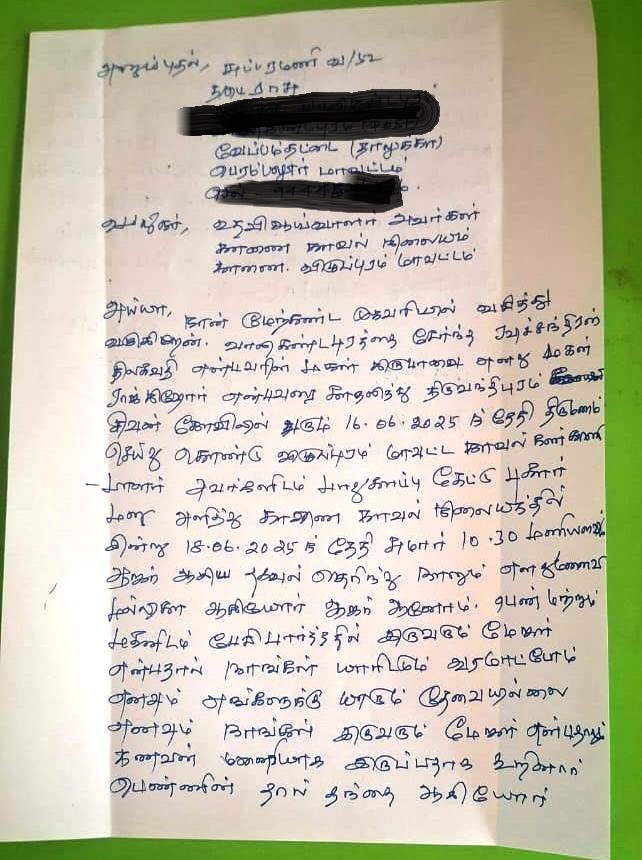 அனுப்புதல், சுப்பரமணி வ/52
த/பெ ராசு
வேப்பந்தட்டை (தாலுக்கா)
பெரம்பலூர் மாவட்டம்
பெறுநர், உதவிஆய்வாளர் அவர்கள்
காணை காவல் நிலையம்
காணை. விழுப்புரம் மாவட்டம்
அய்யா, நான் மேற்கண்ட முகவரியில் வசித்து
வருகிறேன். வாலிகண்டபுரத்தை சேர்ந்த ரவிச்சந்திரன்
திலகவதி என்பவரின் மகள் எனது மகன்
ராஜகிஷோர் என்பவரை காதலித்து திருவந்திபுரம்
சிவன் கோவிலில் வரும் 16.06.2025 ந் தேதி திருமணம்
செய்து கொண்டு விழுப்புரம் மாவட்ட காவல் கண்காணி
-பாளர் அவர்களிடம் பாதுகாப்பு கேட்டு புகார்
மனு அளித்து காணை காவல் நிலையத்தில்
இன்று 18.06.2025 ந் தேதி சுமார் 10.30 மணியளவில்
ஆஜர் ஆகிய தகவல் தெரிந்து நானும் எனது மனைவி
மல்லிகா ஆகியோர் ஆஜர் ஆனோம். பெண் மற்றும்
மகனிடம் பேசி பார்த்ததில் இருவரும் மேஜர்
என்பதால் நாங்கள் யாரிடமும் வரமாட்டோம்
எனவும் அவங்களுக்கு யாரும் தேவையில்லை
எனவும் நாங்கள் இருவரும் மேஜர் என்பதாலும்
கணவன் மனைவியாக இருப்பதாக கூறினார்
பெண்ணின் தாய் தந்தை ஆகியோர்